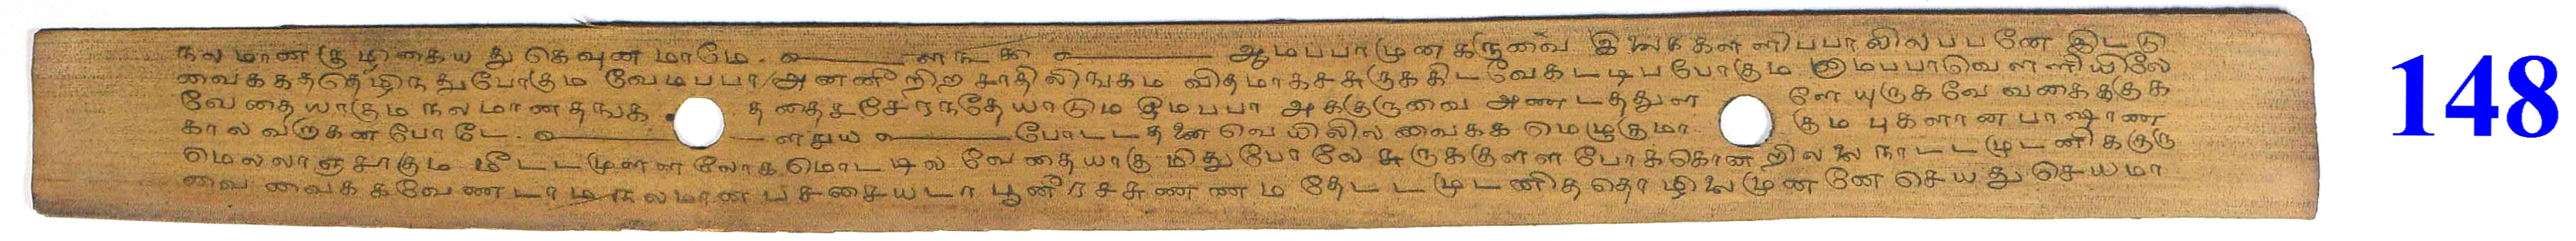 நலமான குழிகையது கெவுன மாமே. ௳ ளநகூ ௳ ஆமபபாமுனகருவை இலைககளளிபபாலிலபபனே இடடு
வைககததெழிநதுபோகும வேமபபா அனனீறிற காதிலிஙகம விதமாகசசுருககிட வேகடடிபபோகும மைபபாவெளளியிலே
வேதையாகும நலமானதஙக தைசசேரநதேயாடும ஓமபபா அககுருவை அணடததுள ளேயுருகவே வகைககுக
காலவருகனபோடே. ௳ ளநுய ௳ போடடதனை வெயிலில வைகக மெழுகுமா குமபுகளானபாஷாண
மெலலாஞசாகும மீடடமுளள லோகமொடடில வேதையாகுமிதுபோலே சுருககுளள போககொனறிலலை நாடடமுடனிககுரு
வை வைககவேணடாம நலமான பசசையடா பூனீரசசுணணம தேடடமுடனிததொழிலை முனனே செயது செயமா